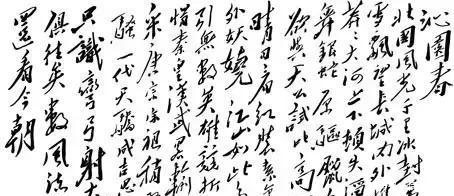 沁園春
北國風光千里冰封
雪飄望長城内外
莽莽大河上下頓失
舞銀蛇原驅臘
欲與天公試比高
晴日看紅裝素
外妖嬈江山如此
引無數英雄競折
惜秦皇漢武略輸
采唐宗宋祖稍
騷一代天驕成吉思
只識彎弓射大
俱往矣數風流
還看今朝